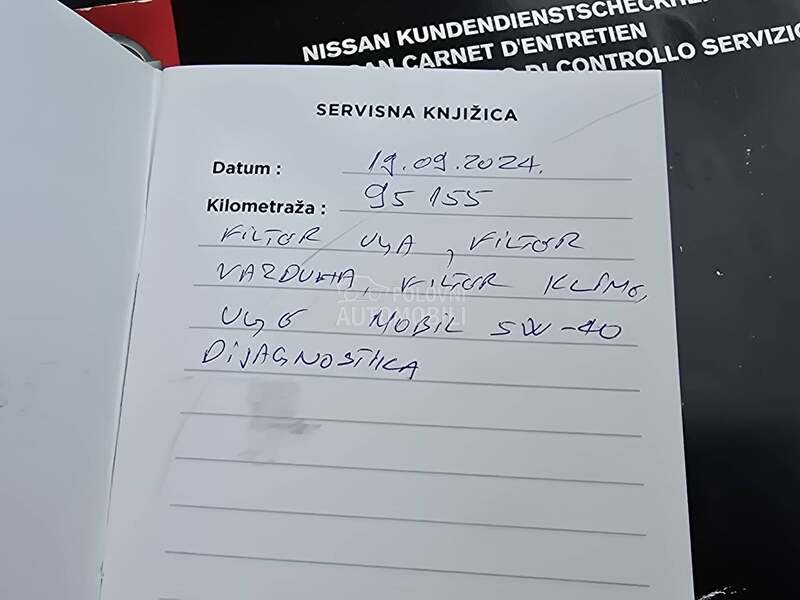 NISSAN KUNDENDIENSTSCHECKHE
AN CARNET D'ENTRETIEN
DI CONTROLLO SERVIZIO
SERVISNA KNJIŽICA
Datum : 19.09.2024.
Kilometraža : 95 155
FILTOR ULJA, FILTOR
VAZDUHA, FILTOR KLIME,
ULJE MOBIL 5W-40
DIJAGNOSTIKA
POLOVNI
AUTOMOBILI